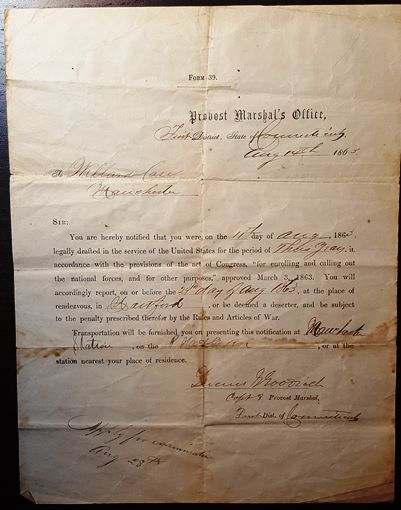 FORM 39.
Provost Marshal's Office,
First District, State of Connecticut,
Aug 14th 1863.
To Willard
Manchester
SIR:
You are hereby notified that you were, on the day of Aug 1863,
legally drafted in the service of the United States for the period of Three Years, in
accordance with the provisions of the act of Congress, "for enrolling and calling out
the national forces, and for other purposes," approved March 3, 1863. You will
accordingly report, on or before the day of Aug 1863, at the place of
rendezvous, in Hartford, or be deemed a deserter, and be subject
to the penalty prescribed therefor by the Rules and Articles of War.
Transportation will be furnished you on presenting this notification at
Station, on the, or at the
station nearest your place of residence.
Capt & Provost Marshal,
First Dist. of Connecticut
for examination
Aug 28th